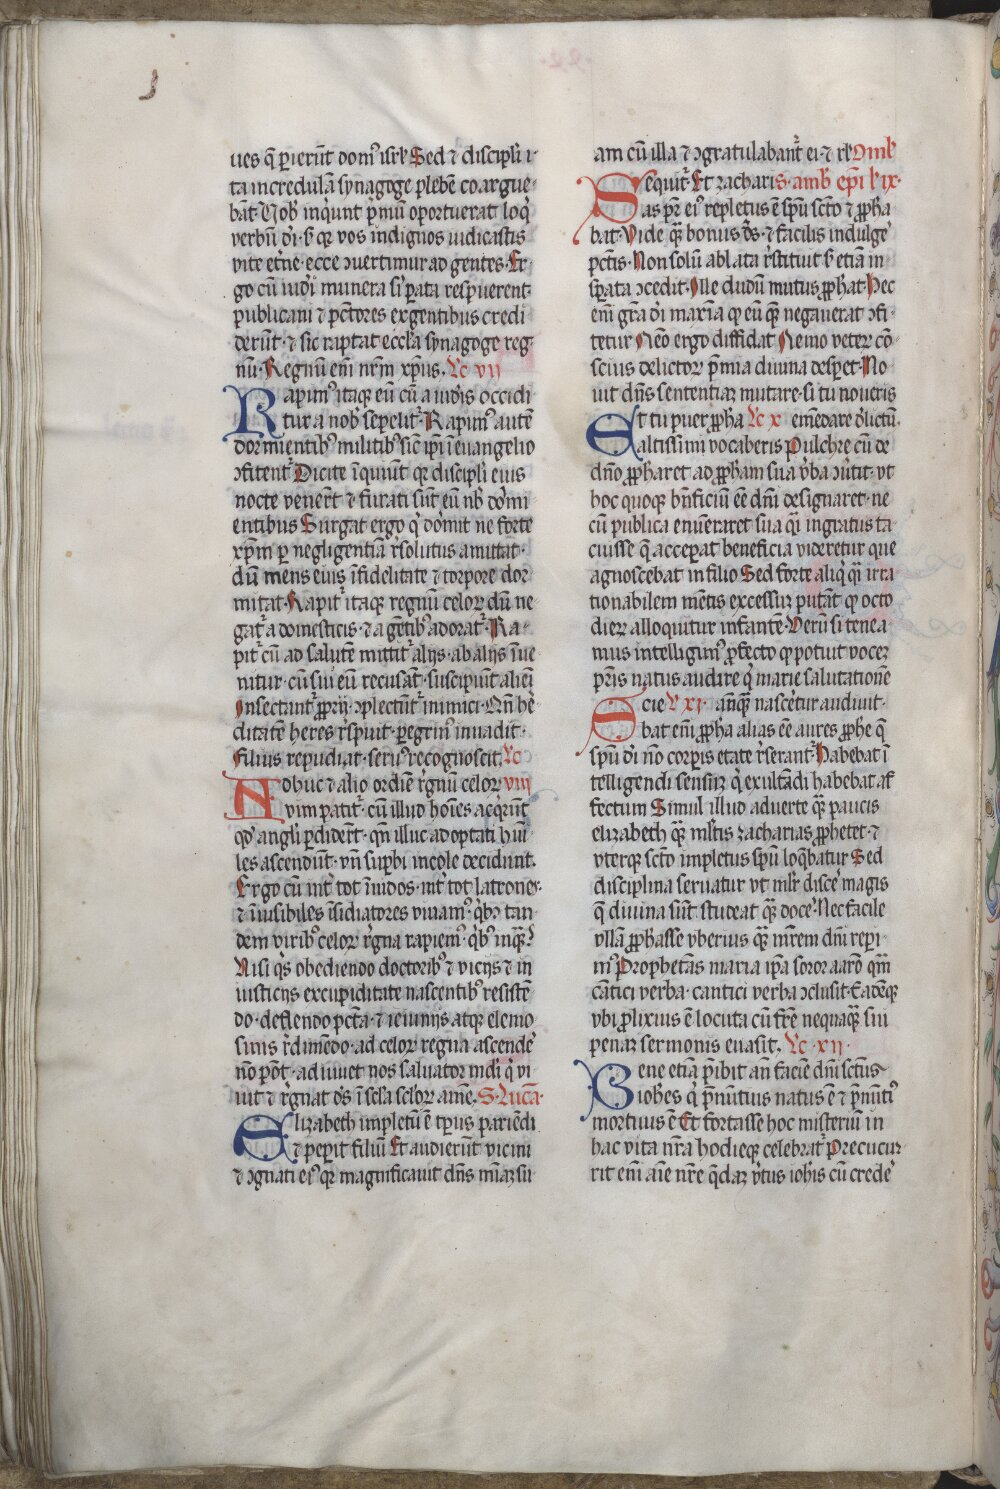 ues q̄ perierūt dom⁹ isrl̓ Sed ⁊ discipl̓i i-
ta incredulā synagoge plebē coargue-
bāt Nob̓ inq̓unt p̓mū oportuerat loq̓
verbū dı̓ s̓ qr vos indignos iudicastis
vite et̓ne ecce ɔuertimur ad gentes Er-
go cū iudı̓ munera sı̓ ꝑata respuerent
publicani ⁊ pctores ex gentibus credi
derūt ⁊ sic raptat̓ eccl̓ia synagoge reg
nū Regnū em̄ nr̄m xp̄us. Lc vij
Rapim⁹ itaqꝫ eū cū a iudı̓s occidi
tur a nob̓ sepelit̓ Rapim⁹ autē
dormientib⁹ militib⁹ sic̓ ip̄i ī euangelio
ɔfitent̓ Dicite īquiūt qr discipl̓i eius
nocte venert̄ ⁊ furati sūt eū nb̓ dormi
entibus Surgat ergo q̓ dormit ne forte
xp̄m ꝑ negligentiā r̓solutus amittat
dū mens eius īfidelitate ⁊ torpore dor
mitat Rapit̓ itaqꝫ regnū celoꝝ dū ne
gat̓ a domesticis ⁊ a gētib⁹ adorat̓ Ra-
pit̓ cū ad salutē mittit̓ alijs ab alijs īue
nitur cū sui eū recusāt suscipiūt alieni
Insectant̓ ꝓprij ɔplectūt̓ inimici Nn̄ he̓
ditatē heres r̓spuit peregrin⁹ inuadit
filius repudiat seru⁹ recognoscit. Lc
Adhuc ⁊ alio ordīe r̓gnū celoꝝ viij
vim patit̓ cū illud hoīes acq̓rūt
qd̓ angl̓i ꝑdidert̄ qn̄ illuc adoptati hūi
les ascendūt vn̄ suꝑbi incole decidunt.
Ergo cū int̓ tot īuidos int̓ tot latrones
⁊ īuisibiles īsidiatores viuam⁹ q̓bꝫ tan
dem virib⁹ celoꝝ r̓gna rapiem⁹ q̓b⁹ inqꝫ̄
Nisi q̓s obediendo doctorib⁹ ⁊ vicijs ⁊ in
iusticijs ex cupiditate nascentib⁹ resistē
do deflendo pctā ⁊ ieiunijs atqꝫ elemo
sinis r̓dimēdo ad celoꝝ regna ascende̓
nō pōt adiuuet nos saluator mdı̓ q̓ vi
uit ⁊ r̓gnat ds̄ ī scl̓a scl̓oꝝ amē. S. Lucā
Elizabeth impletū ē tp̄us pariēdi
⁊ peꝑit filiū Et audierūt vicini
⁊ ɔgnati ei⁹ qr magnificauit dn̄s mīaꝫ su
am cū illa ⁊ ɔgratulabant̓ ei ⁊ rl̓ Omł
Sequit̓ Et zacharis amb̓ ep̄i l̓ ix
as pr̄ ei⁹ repletus ē spū scto ⁊ ꝓpha
bat Vide qꝫ̄ bonus ds̄ ⁊ facilis indulge̓
pctīs Non solū ablata r̓stituit s̓ etiā in
sꝑata ɔcedit Ille dudū mutus ꝓph̓at Hec
em̄ grā dı̓ maxīa qꝫ eū qꝫ̄ negauerat ɔfi-
tetur Nēo ergo diffidat Nemo veteꝝ cō-
scius delictoꝝ p̓mia diuina despet̓ No
uit dn̄s sententiaꝫ mutare si tu noueris
Et tu puer ꝓpha Lc x emēdare dl̓ictū
altissimi vocaberis Pulchre cū de
dn̄o ꝓph̓aret ad ꝓph̓am sua v̓ba ɔu̓tit vt
hoc quoqꝫ bn̄ficiū eē dn̄i designaret ne
cū publica enūeraret sua qı̓ ingratus ta
cuisse q̄ acceꝑat beneficia videretur que
agnoscebat in filio Sed forte aliq̓ qı̓ irra
tionabilem mētis excessuꝫ putāt qꝫ octo
dieꝝ alloquitur infantē Verū si tenea
mus intelligim⁹ ꝓfecto qꝫ potuit vocez
pr̄is natus audire q̓ marie salutationē
Scie L xi anteqꝫ nasce̓tur audiuit
bat em̄ ꝓpha alias eē aures ꝓphe q̄
spū dı̓ nō corꝑis etate r̓serant̓ Habebat ī
telligendi sensuꝫ q̓ exultādi habebat af
fectum Simul illud aduerte qꝫ̄ paucis
elizabeth qꝫ̄ ml̓tis zacharias ꝓph̓etet ⁊
vterqꝫ scto impletus spū loq̄batur Sed
disciplina seruatur vt ml̓r disce̓ magis
q̄ diuina sūt studeat qꝫ̄ doce̓ Nec facile
vllā ꝓph̓asse vberius qꝫ̄ mr̄em dn̄i reperi
m⁹ Prophetās maria ip̄a soror aarō qꝫ̄m
cātici verba cantici verba ɔclusit Eadēqꝫ
vbi ꝓlixius ē locuta cū fr̄e nequaqꝫ̄ sui
penaꝫ sermonis euasit. Lc xij
Bene etiā p̓ibit an̄ faciē dn̄i sctus
ioh̓es q̓ p̄nūtius natus ē ⁊ p̄nūti⁹
mortuus ē Et fortasse hoc misteriū in
hac vita nr̄a hodieqꝫ celebrat̓ Precucur
rit em̄ aīe nr̄e q̄daꝫ v̓tus ioh̓is cū crede̓